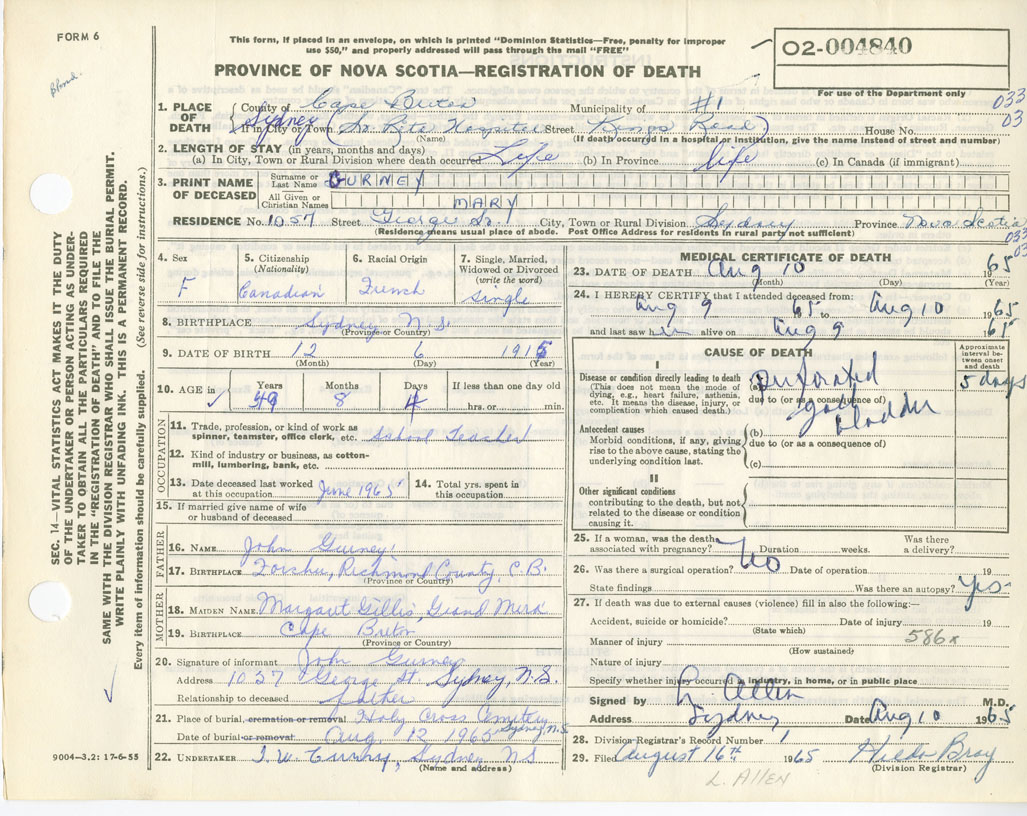 FORM 6
Blind.
This form, if placed in an envelope, on which is printed "Dominion Statistics—Free, penalty for improper
use $50," and properly addressed will pass through the mail "FREE"
PROVINCE OF NOVA SCOTIA—REGISTRATION OF DEATH
O2-004840
For use of the Department only
033
03
1. PLACE OF DEATH
County of Cape Breton Municipality of #1
Sydney
If in City or Town (St. Rita Hospital Street Kings Road) House No.
(Name) (If death occurred in a hospital or institution, give the name instead of street and number)
2. LENGTH OF STAY (in years, months and days)
(a) In City, Town or Rural Division where death occurred Life (b) In Province life (c) In Canada (if immigrant)
3. PRINT NAME OF DECEASED
Surname or Last Name GURNEY
All Given or Christian Names MARY
RESIDENCE No. 1057 Street George St. City, Town or Rural Division Sydney Province Nova Scotia
(Residence means usual place of abode. Post Office Address for residents in rural party not sufficient)
033
03
4. Sex
F
5. Citizenship
(Nationality)
Canadian
6. Racial Origin
French
7. Single, Married,
Widowed or Divorced
(write the word)
Single
8. BIRTHPLACE Sydney N.S.
(Province or Country)
9. DATE OF BIRTH 12 6 1915
(Month) (Day) (Year)
10. AGE in
Years Months Days If less than one day old
49 8 4 hrs. or min.
OCCUPATION
11. Trade, profession, or kind of work as
spinner, teamster, office clerk, etc. School Teacher
12. Kind of industry or business, as cotton-
mill, lumbering, bank, etc.
13. Date deceased last worked
at this occupation June 1965
14. Total yrs. spent in
this occupation
15. If married give name of wife
or husband of deceased
FATHER
16. NAME John Gurney
17. BIRTHPLACE Forchu, Richmond County, C.B.
(Province or Country)
MOTHER
18. MAIDEN NAME Margaret Gillis, Grand Mira
19. BIRTHPLACE Cape Breton
(Province or Country)
20. Signature of informant John Gurney
Address 1057 George St. Sydney, N.S.
Relationship to deceased father
21. Place of burial, cremation or removal Holy Cross Cemetery
Sydney N.S
Date of burial or removal Aug. 12 1965
22. UNDERTAKER T. W. Curry, Sydney NS
(Name and address)
MEDICAL CERTIFICATE OF DEATH
23. DATE OF DEATH Aug 10 1965
(Month) (Day) (Year)
24. I HEREBY CERTIFY that I attended deceased from:
Aug 9 65 to Aug 10 1965
and last saw her alive on Aug 9 1965
CAUSE OF DEATH
Approximate
interval be-
tween onset
and death
I
Disease or condition directly leading to death
(This does not mean the mode of
dying, e.g., heart failure, asthenia,
etc. It means the disease, injury, or
complication which caused death.)
(a) Perforated
due to (or as a consequence of)
gall
bladder
5 days
Antecedent causes
Morbid conditions, if any, giving
rise to the above cause, stating the
underlying condition last.
(b)
due to (or as a consequence of)
(c)
II
Other significant conditions
contributing to the death, but not
related to the disease or condition
causing it.
25. If a woman, was the death
associated with pregnancy? No Duration weeks. Was there
a delivery?
26. Was there a surgical operation? Date of operation 19
State findings Was there an autopsy? Yes
27. If death was due to external causes (violence) fill in also the following:—
Accident, suicide or homicide? Date of injury 19
(State which)
586x
Manner of injury
(How sustained)
Nature of injury
Specify whether injury occurred in industry, in home, or in public place
Signed by L. Allen M.D.
Address Sydney Date Aug 10 1965
28. Division Registrar's Record Number 1
29. Filed August 16th 1965 Hilda Bray
(Division Registrar)
L. ALLEN
SEC. 14—VITAL STATISTICS ACT MAKES IT THE DUTY
OF THE UNDERTAKER OR PERSON ACTING AS UNDER-
TAKER TO OBTAIN ALL THE PARTICULARS REQUIRED
IN THE "REGISTRATION OF DEATH" AND TO FILE THE
SAME WITH THE DIVISION REGISTRAR WHO SHALL ISSUE THE BURIAL PERMIT.
WRITE PLAINLY WITH UNFADING INK. THIS IS A PERMANENT RECORD.
Every item of information should be carefully supplied. (See reverse side for instructions.)
9004—3.2: 17-6-55